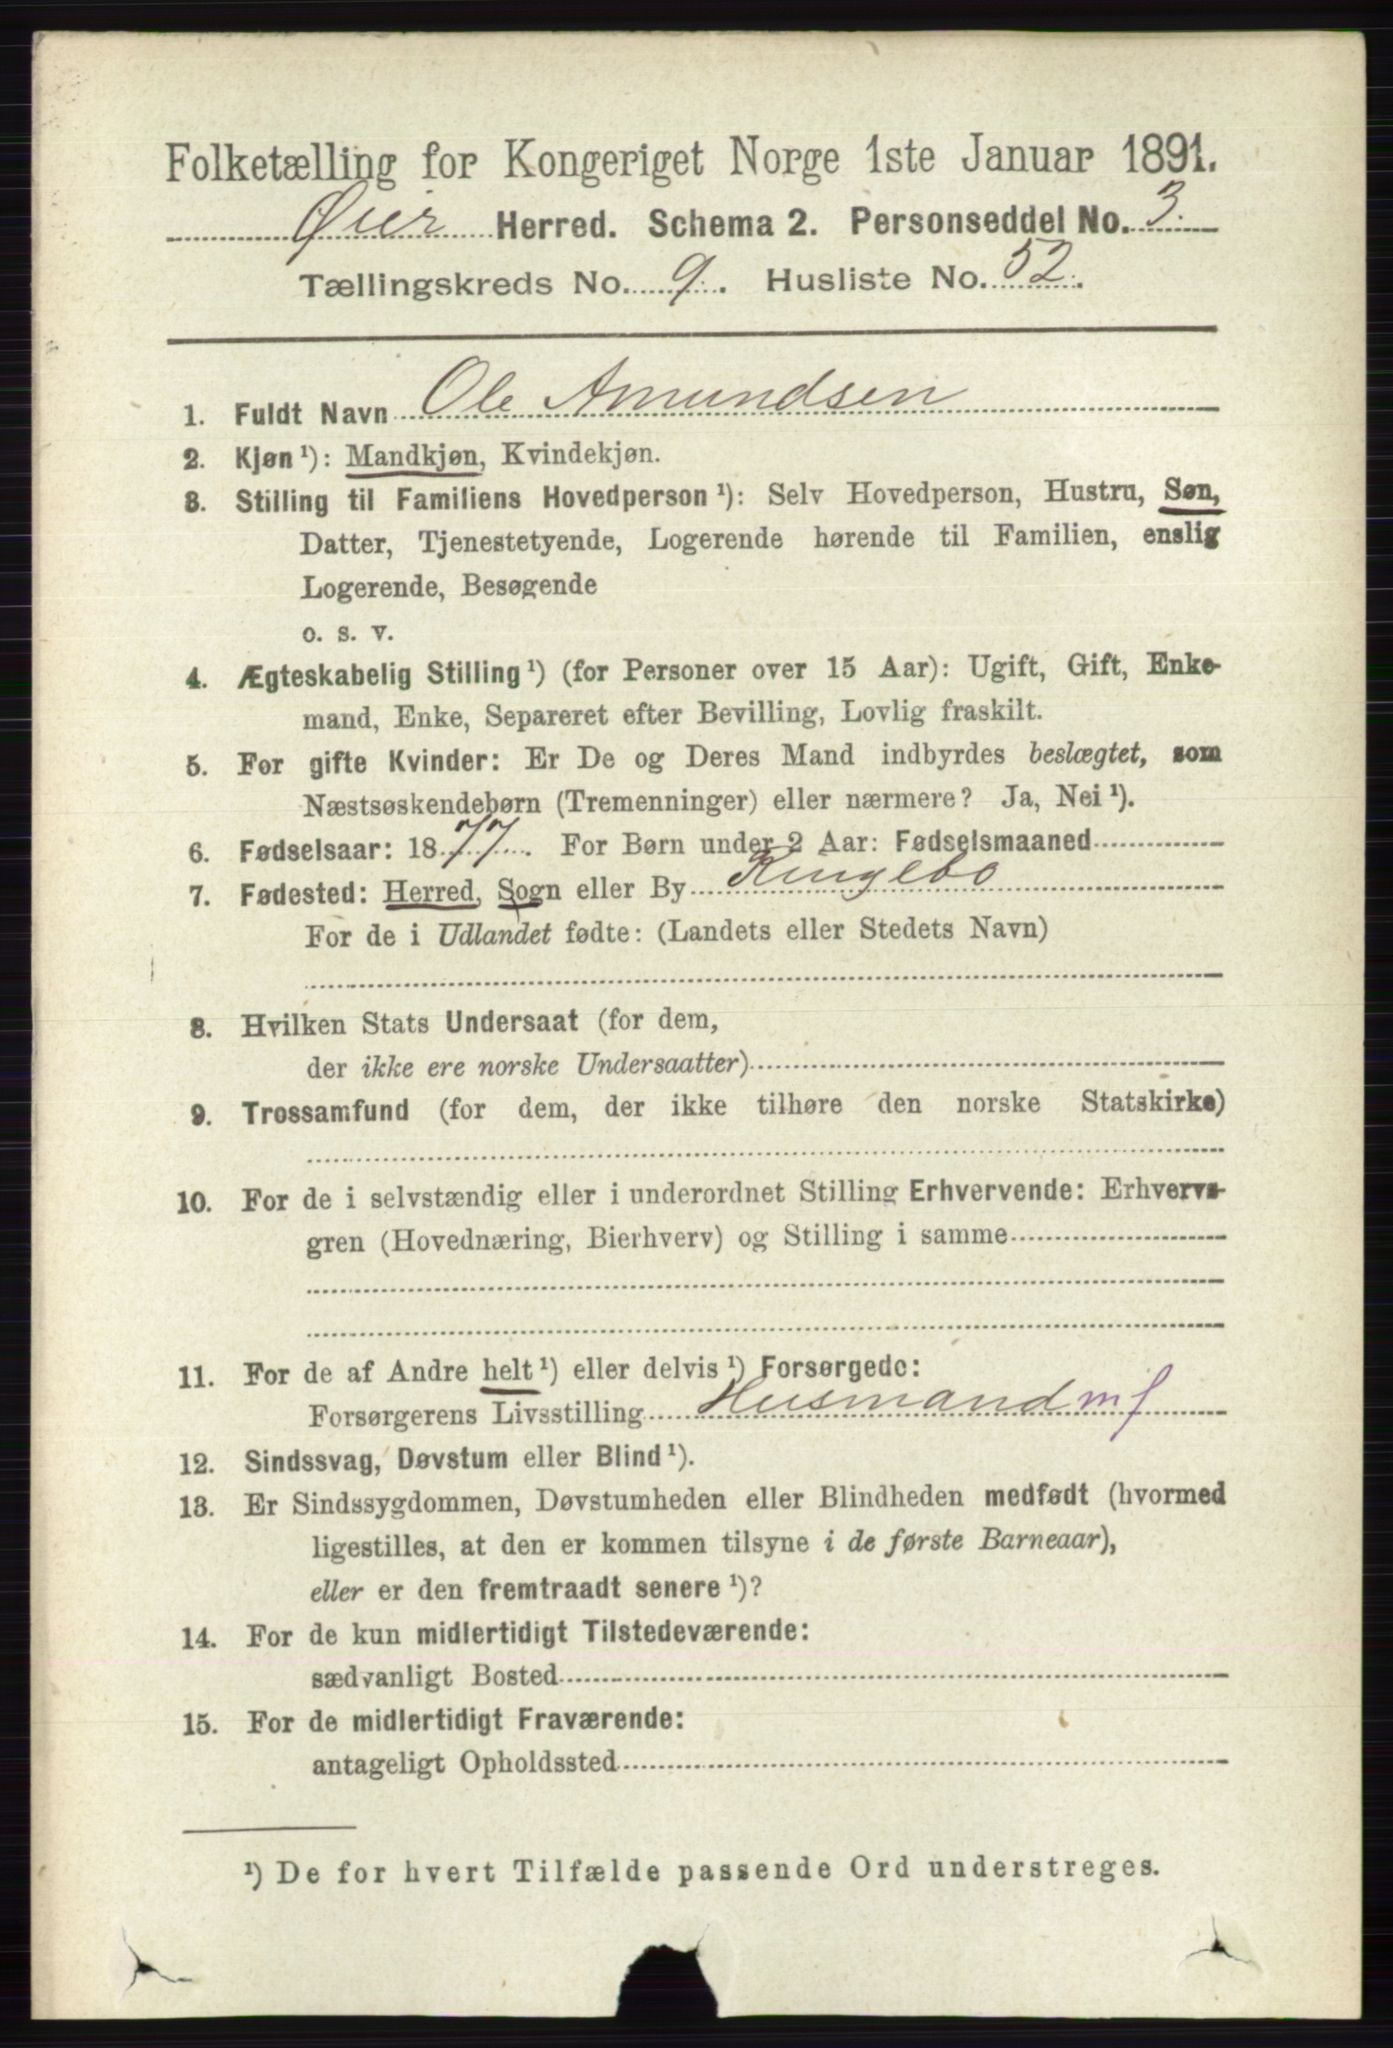 Folketælling for Kongeriget Norge 1ste Januar 1891.
Øier Herred. Schema 2. Personseddel No. 3.
Tællingskreds No. 9. Husliste No. 52.
1. Fuldt Navn Ole Amundsen
2. Kjøn ¹): Mandkjøn, Kvindekjøn.
3. Stilling til Familiens Hovedperson ¹): Selv Hovedperson, Hustru, Søn,
Datter, Tjenestetyende, Logerende hørende til Familien, enslig
Logerende, Besøgende
o. s. v.
4. Ægteskabelig Stilling ¹) (for Personer over 15 Aar): Ugift, Gift, Enke-
mand, Enke, Separeret efter Bevilling, Lovlig fraskilt.
5. For gifte Kvinder: Er De og Deres Mand indbyrdes beslægtet, som
Næstsøskendebørn (Tremenninger) eller nærmere? Ja, Nei ¹).
6. Fødselsaar: 1877. For Børn under 2 Aar: Fødselsmaaned
7. Fødested: Herred, Sogn eller By Ringebo
For de i Udlandet fødte: (Landets eller Stedets Navn)
8. Hvilken Stats Undersaat (for dem,
der ikke ere norske Undersaatter)
9. Trossamfund (for dem, der ikke tilhøre den norske Statskirke)
10. For de i selvstændig eller i underordnet Stilling Erhvervende: Erhvervs-
gren (Hovednæring, Bierhverv) og Stilling i samme
11. For de af Andre helt ¹) eller delvis ¹) Forsørgede:
Forsørgerens Livsstilling Husmand mf
12. Sindssvag, Døvstum eller Blind ¹).
13. Er Sindssygdommen, Døvstumheden eller Blindheden medfødt (hvormed
ligestilles, at den er kommen tilsyne i de første Barneaar),
eller er den fremtraadt senere ¹)?
14. For de kun midlertidigt Tilstedeværende:
sædvanligt Bosted
15. For de midlertidigt Fraværende:
antageligt Opholdssted
¹) De for hvert Tilfælde passende Ord understreges.